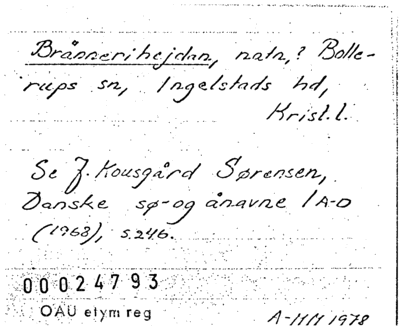 Brånnerihejdan, natn,? Bolle-
rups sn, Ingelstads hd,
Krisl.l.
Se J. Kousgård Sørensen,
Danske sø- og ånavne 1 A-D
(1968), s. 246.
00024793
OAU etym reg
A-MM 1978